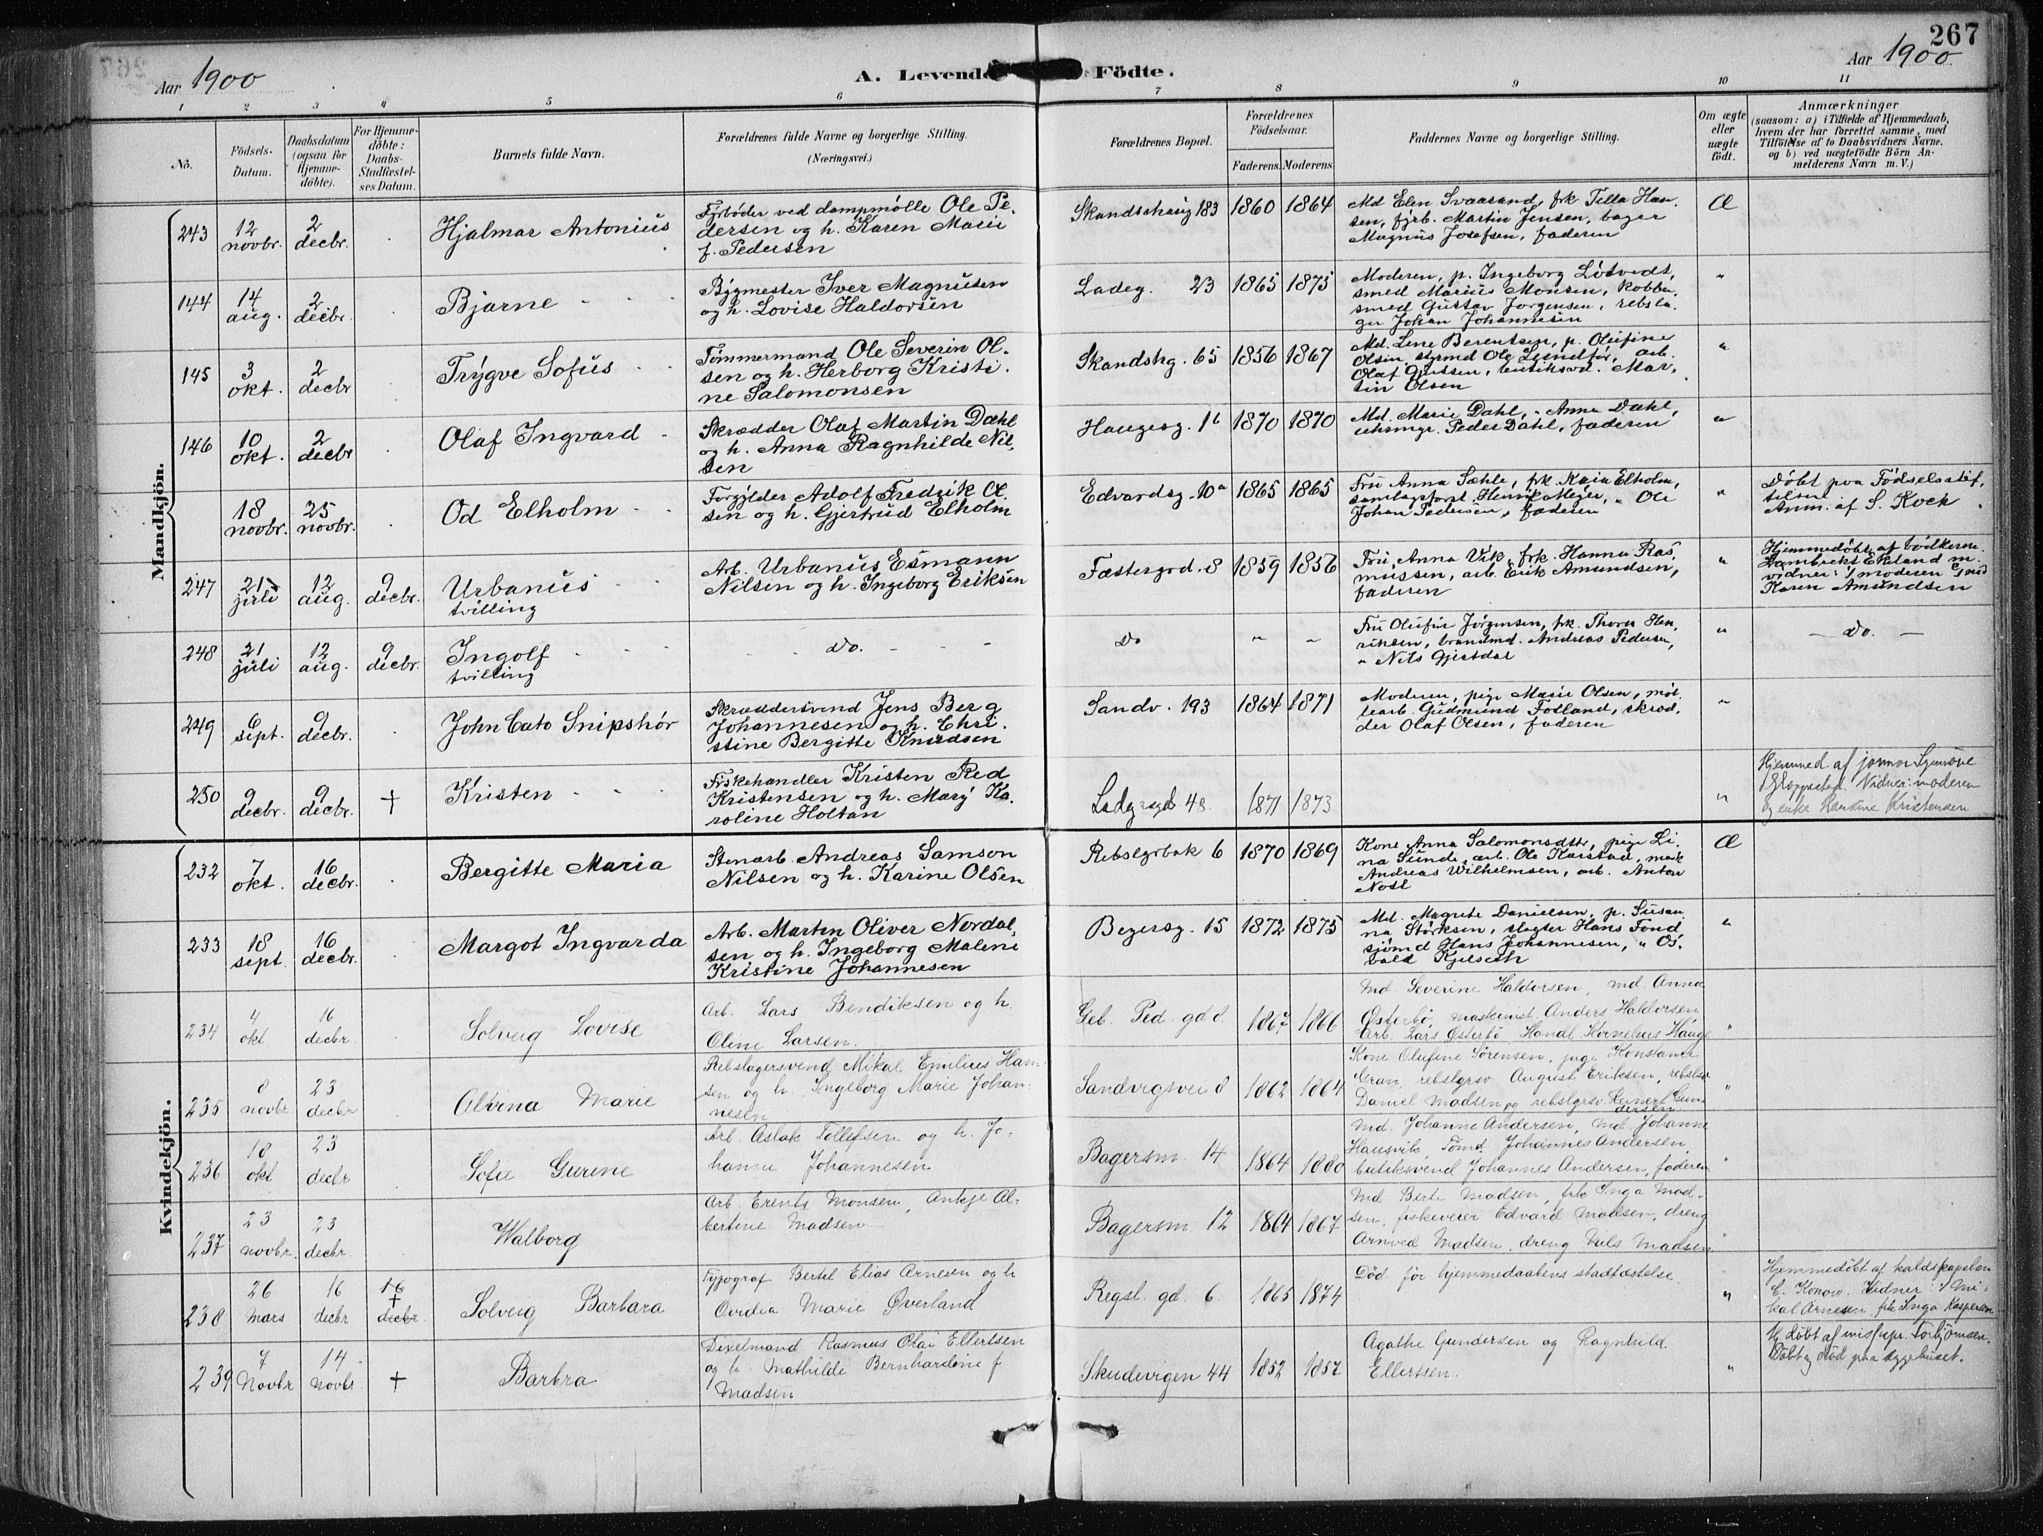 267
Aar 1900
A. Levende Fødte.
Aar 1900
1 2 3 4 5 6 7 8 9 10 11
No.
Födsels-
Datum.
Daabsdatum
(ogsaa for
Hjemme-
döbte).
For Hjemme-
döbte:
Daabs-
Stadfæstel-
ses Datum.
Barnets fulde Navn.
Forældrenes fulde Navne og borgerlige Stilling.
(Næringsvei.)
Forældrenes Bopæl.
Forældrenes
Födselsaar.
Faderens. Moderens.
Faddernes Navne og borgerlige Stilling.
Om ægte
eller
uægte
födt.
Anmærkninger
(saasom: a) i Tilfælde af Hjemmedaab,
hvem der har forrettet samme, med
Tilföielse af to Daabsvidners Navne,
og b) ved uægtefödte Börn An-
melderens Navn m. V.)
Mandkjön.
243 12 novbr. 2 decbr. Hjalmar Antonius
Fyrbøder ved dampmølle Ole Pe-
dersen og h. Karen Marie
f. Pedersen
Skandshaug 183 1860 1864
Md Elen Svaasand, frk Tilla Han-
sen, fyrb. Martin Jensen, bager
Magnus Josefsen, faderen
Æ
144 14 aug. 2 decbr. Bjarne
Bygmester Iver Magnusen
og h. Lovise Haldorsen
Ladeg. 23 1865 1875
Moderen, p. Ingeborg Løtvedt,
smed Marius Monsen, kobber-
smed Gustav Jørgensen, rebsla-
ger Johan Johannesen
"
145 3 okt. 2 decbr Trygve Sofus
Tømmermand Ole Severin Ol-
sen og h. Herborg Kristi-
ne Salomonsen
Skandshg. 65 1856 1867
Md. Lene Berentsen, p. Olufine
Olsen, styrmd Ole Lundfør, arb.
Olaf butiksvd. Mar-
tin Olsen
"
146 10 okt. 2 decbr Olaf Ingvard
Skrædder Olaf Martin Dæhl
og h. Anna Ragnhilde Nil-
sen
Haugesg. 16 1870 1870
Md. Marie Dahl, " Anna Dæhl,
uhrmgr. Peder Dahl, faderen
"
18 novbr. 25 novbr. Od Elholm
Forgylder Adolf Fredrik Ol-
sen og h. Gjertrud Elholm
Edvardsg. 10a 1865 1865
Fru Anna Sæhle, frk Kaia Elholm,
samlagsforst. Henrik Meyer, " Ole
Johan Pedersen, faderen
"
Døbt paa Fødselsstif-
telsen
Anm. af S. Kock
247 21 juli 12 aug. 9 decbr. Urbanus
tvilling
Arb. Urbanus Esmann
Nilsen og h. Ingeborg Eriksen
Fæstergrd. 8 1859 1856
Fru Anna Vik, frk. Hanna Ras-
mussen, arb. Erik Amundsen,
faderen
"
Hjemmedøbt af bødkersv.
Lambrekt Ekeland m
vidner: moderen og
Karen Amundsen
248 21 juli 12 aug. 9 decbr. Ingolf
tvilling
do.
do " "
Fru Olufine Jørgensen, frk. Thora Hen-
riksen, brandmd. Andreas Pedersen,
" Nils Gjesdal
"
- do. -
249 6 sept. 9 decbr. John Cato Snipshør
Skræddersvend Jens Berg
Johannesen og h. Chri-
stine Bergitte Knudsen
Sandv. 193 1864 1871
Moderen, pige Marie Olsen, møl-
learb. Gudmund Fotland, skræd-
der Olaf Olsen, faderen
"
250 9 decbr. 9 decbr. † Kristen
Fiskehandler Kristen Red
Kristensen og h. Mary Ka-
roline Holtan
Ladgrgd 48 1871 1873
"
Hjemmed. af jormor
Vidner: moderen
og enke Kristensen
Kvindekjön.
232 7 okt. 16 decbr. Bergitte Maria
Stenarb. Andreas Samson
Nilsen og h. Karine Olsen
Rebslgrbak 6 1870 1869
Kone Anna Salomonsdtr, pige Li-
na Sunde, arb. Ole Karstad, mask
Andreas Wilhelmsen, arb. Anton
Æ
233 18 sept. 16 decbr. Margot Ingvarda
Arb. Martin Oliver Nordal-
sen og h. Ingeborg Malene
Kristine Johannesen
15 1872 1875
Md. Magrete Danielsen, p. Susan-
na Størksen, slagter Hans Fond,
sjømd Hans Johannesen, " Os-
vald
"
234 4 okt. 16 decbr. Solveig Lovise
Arb. Lars Bendiksen og h.
Oline Larsen.
Geb. Ped. gd 8. 1867 1866
Md Severine Haldorsen, md Anna
Østerbø maskinist Anders Haldorsen
Arb. Lars Østerbø, Handl Kornelius Hauge
"
235 8 novbr. 23 decbr Alvina Marie
Rebslagersvend Mikal Emilius Han-
sen og h. Ingeborg Marie Johan-
nesen
Sandvigsvei 8 1862 1864
Kone Olufine Sørensen, pige Konstance
Gran, rebslgrsv August Eriksen, rebslsv
Daniel Madsen og rebslgrsv Reinert Gun-
dersen
"
236 18 okt 23 decbr Sofie Gurine
Arb. Aslak Tollefsen og h. Jo-
hanne Johannesen
Bagersm. 14 1864 1880
Md. Johanne Andersen, md Johanne
Hausvik, Tømd. Johannes Andersen,
butiksvend Johannes Andersen, faderen
"
237 23 novbr. 23 decbr. Walborg
Arb Erents Monsen, Antje Al-
bertine Madsen
Bagersm 12 1864 1867
Md Berte Madsen, frk Inga Mad-
sen, fiskeverer Edvard Madsen, dreng
Arnved Madsen, dreng Nils Madsen
"
238 26 mars 16 decbr 16 † decbr Solveig Barbara
Typograf Bertel Elias Arnesen og h
Ovidia Marie Øverland
Regsl. gd 6. 1865 1874
Død før hjemmedaabens stadfæstelse
"
Hjemmedøbt af kaldskapelan
C. Konow. Vidner: Mi-
kal Arnesen, frk Inga Kaspersen
239 7 Novbr 14 novbr. † Barbra
Dixelmand Rasmus Olai Ellertsen
og h. Mathilde Bernhardene f
Madsen
Skudevigen 44 1852 1857
Agathe Gundersen og Ragnhild
Ellertsen.
"
Hj. døbt af misspr. Torbjørnsen.
Døbt og død paa sygehuset.